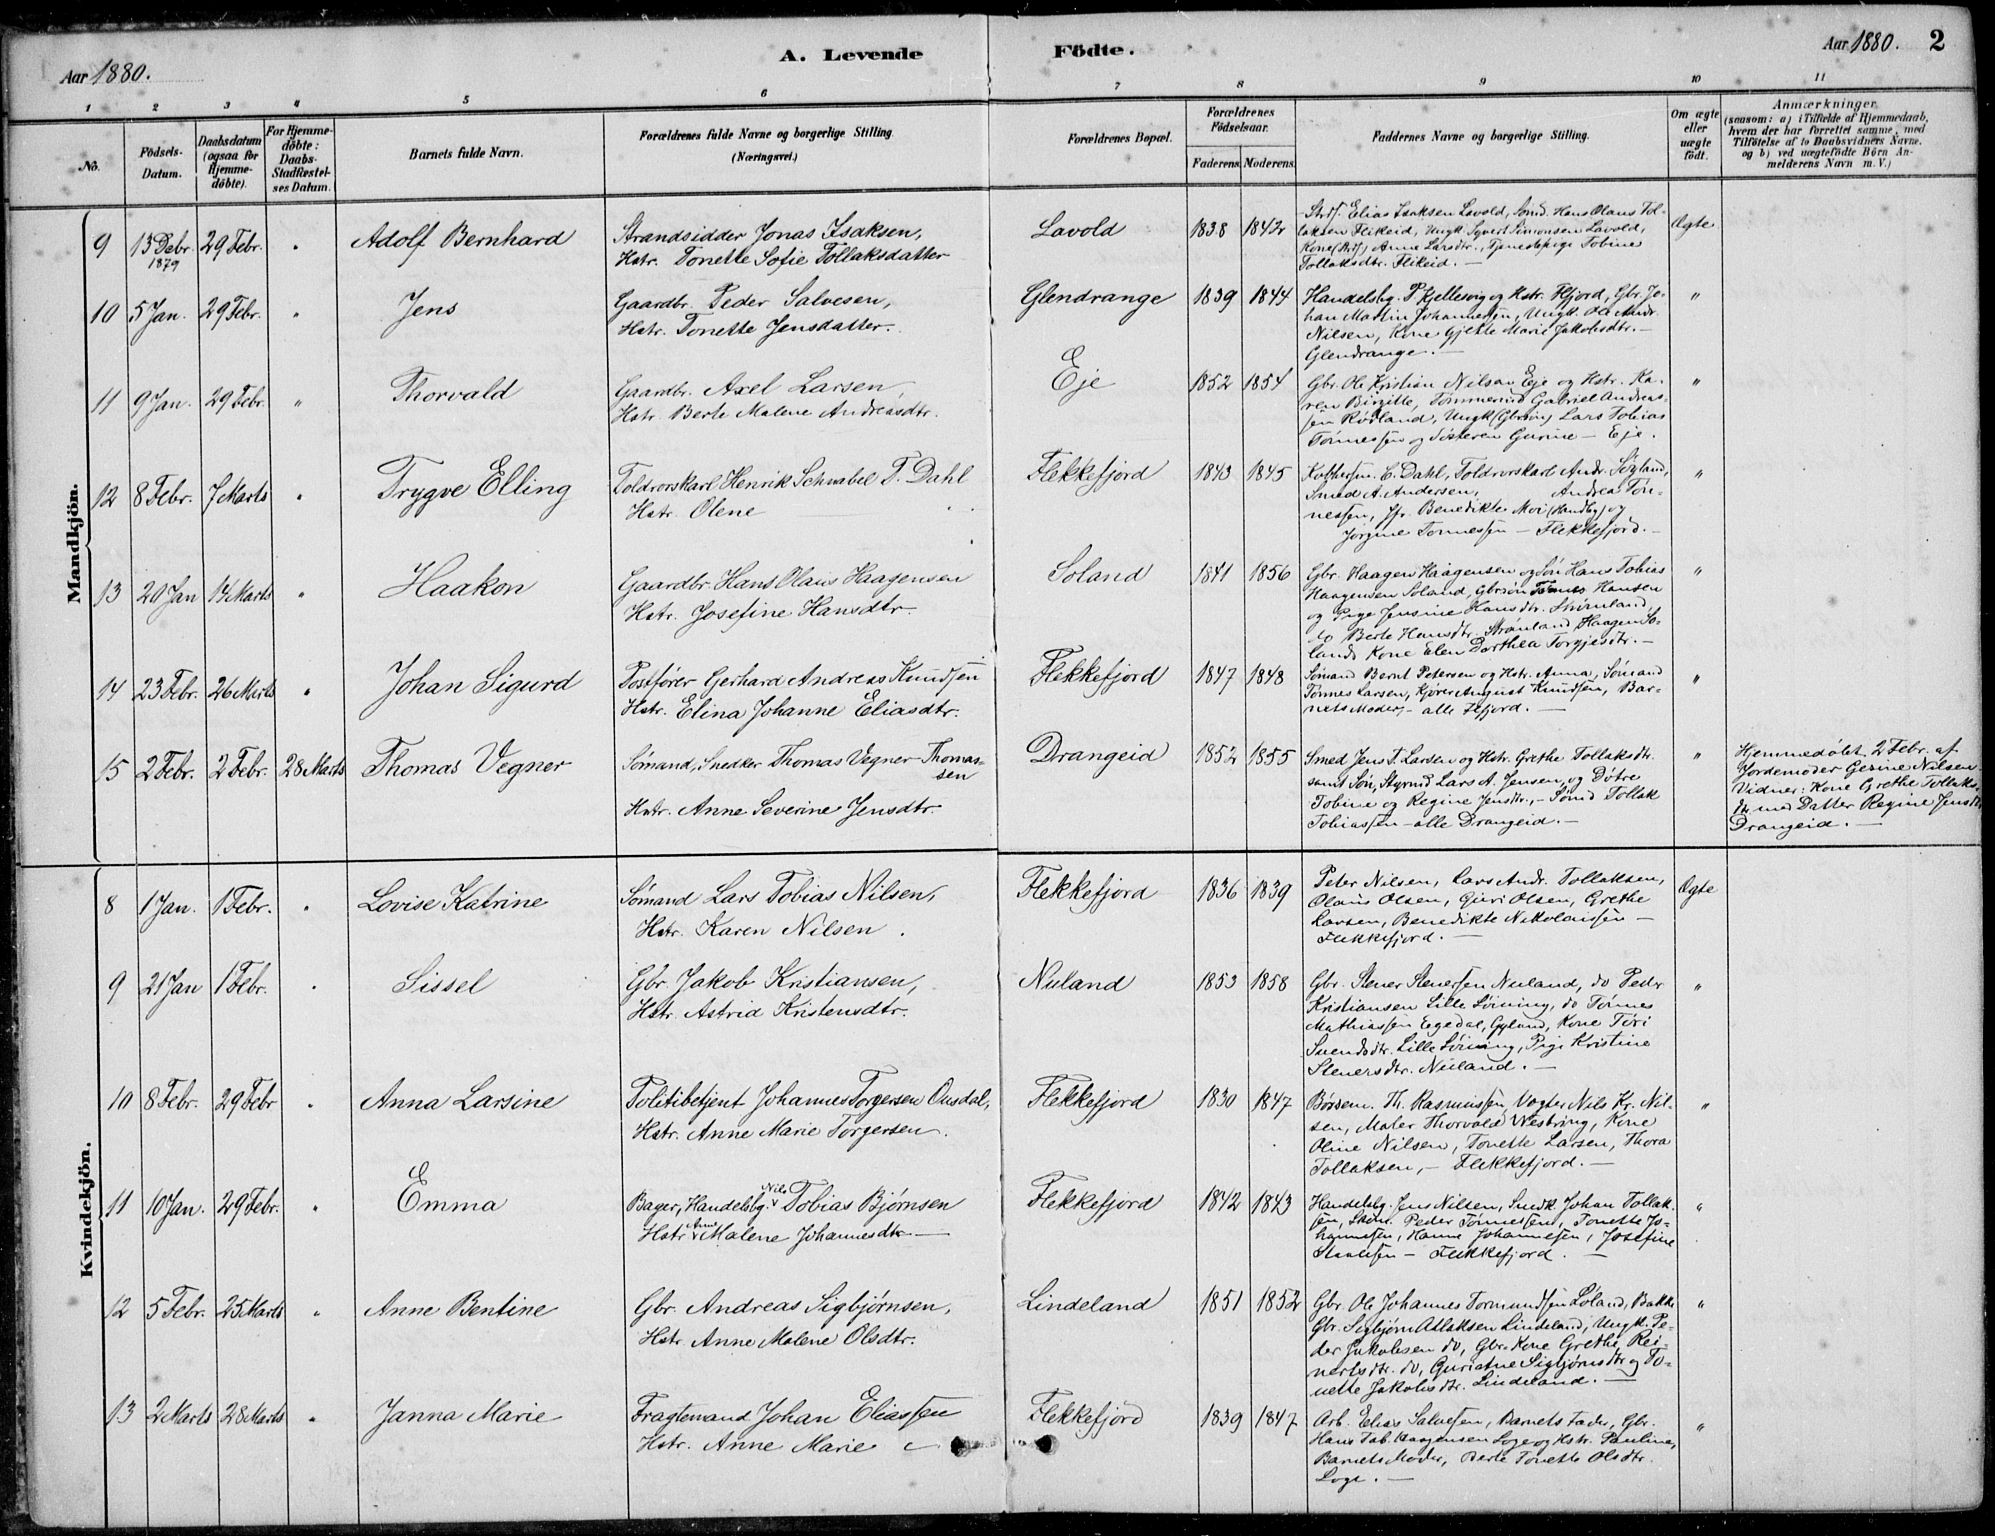 A. Levende Födte.
Aar 1880.
Aar 1880. 2
1 2 3 4 5 6 7 8 9 10 11
No.
Födsels-Datum.
Daabsdatum (ogsaa for Hjemme-döbte).
For Hjemme-döbte: Daabs-Stadfæstel-ses Datum.
Barnets fulde Navn.
Forældrenes fulde Navne og borgerlige Stilling. (Næringsvei.)
Forældrenes Bopæl.
Forældrenes Födselsaar.
Faderens. Moderens.
Faddernes Navne og borgerlige Stilling.
Om ægte eller uægte födt.
Anmærkninger
(saasom: a) i Tilfælde af Hjemmedaab,
hvem der har forrettet samme, med
Tilföielse af to Daabsvidners Navne,
og b) ved uægtefödte Börn An-
melderens Navn m. V.)
Mandkjön.
9 13 Debr. 1879 29 Febr. " Adolf Bernhard
Strandsidder Jonas Isaksen,
Hstr. Tonette Sofie Tollaksdatter
Lavold 1838 1842
Strds. Elias Isaksen Lavold, Sømd. Hans Olaus Tol-
laksen Flikeid, Ungk. Syvert Simonsen Lavold,
Kone (Strds) Anne Larsdtr., Tjenestepige Tobine
Tollaksdtr. Flikeid. —
Ægte
10 5 Jan. 29 Febr. " Jens
Gaardbr. Peder Salvesen,
Hstr. Tonette Jensdatter.
Glendrange 1839 1844
Handelsbg. P. Kjellesvig og Hstr. Flfjord, Gbr. Jo-
han Martin Johannesen, Ungk. Ole Andr.
Nilsen, Kone Gjette Marie Jakobsdtr. —
Glendrange. —
"
11 9 Jan. 29 Febr. " Thorvald
Gaardbr. Axel Larsen,
Hstr. Berte Malene Andreasdtr.
Eje 1852 1854
Gbr. Ole Kristian Nilsen Eje og Hstr. Ka-
ren Birgitte, Tømmermd Gabriel Andreas-
sen Rødland, Ungk. (Gbrsøn) Lars Tobias
Tønnessen og Søsteren Gurine — Eje.
"
12 8 Febr. 7 Marts " Trygve Elling
Toldrorskarl Henrik Schwabel T. Dahl
Hstr. Olene
Flekkefjord 1843 1845
E. Dahl, Toldrorskarl Andr. Søyland,
Smed A. Andersen, Andrea Tøn-
nessen, Jfr. Benedikte Moi (Handlbg) og
Jørgine Tønnessen — Flekkefjord. —
"
13 20 Jan 14 Marts " Haakon
Gaardbr. Hans Olaus Haagensen
Hstr. Josefine Hansdtr
Soland 1841 1856
Gbr. Haagen Haagensen og Søn Hans Tobias
Haagensen Soland, Gbrsøn Tønnes Hansen
og Pige Jensine Hansdtr.
do Berte Hansdtr. Haagen So-
lands Kone Elen Dorthea Torgjesdtr. —
"
14 23 Febr. 26 Marts " Johan Sigurd
Postfører Gerhard Andreas Knudsen
Hstr. Elina Johanne Eliasdtr.
Flekkefjord 1847 1848
Sømand Bernt Petersen og Hstr. Anna, Sømand
Tønnes Larsen, Kjører August Knudsen, Bar-
nets Moder, — alle Flfjord. —
"
15 2 Febr. 2 Febr. 28 Marts Thomas Vegner
Sømand, Snedker Thomas Vegner Thomas-
sen
Hstr. Anne Severine Jensdtr.
Drangeid 1852 1855
Smed Jens T. Larsen og Hstr. Grethe Tollaksdtr.
samt Søn, Styrmd Lars A. Jensen, og Døtre
Tobine og Regine Jensdtr., — Sømd Tollak
Tobiassen — alle Drangeid. —
"
Hjemmedøbt 2 Febr. af
Jordemoder Gesine Nilsen.
Vidner: Kone Grethe Tollaks-
dtr med Datter Regine Jensdtr
Drangeid. —
Kvindekjön.
8 1 Jan. 1 Febr. " Lovise Katrine
Sømand Lars Tobias Nilsen,
Hstr. Karen Nilsen.
Flekkefjord 1836 1839
Peter Nilsen, Lars Andr. Tollaksen,
Olaus Olsen, Guri Olsen, Grethe
Larsen, Benedikte Nikolaussen —
Flekkefjord. —
Ægte
9 21 Jan 1 Febr. " Sissel
Gbr. Jakob Kristiansen,
Hstr. Astrid Kristensdtr.
Nuland 1853 1858
Gbr. Stener Stenersen Nuland, do Peder
Kristiansen Lille Løining, do Tønnes
Mathiassen Egedal, Gyland, Kone Tøri
Svendsdtr. Lille Løining, Pige Kristine
Stenersdtr. Nuland. —
"
10 8 Febr. 29 Febr " Anna Larsine
Politibetjent Johannes Torgersen Ousdal,
Hstr. Anne Marie Torgersen.
Flekkefjord 1830 1847
Bøssem. Th. Rasmussen, Vægter Nils Kr. Nil-
sen, Maler Thorvald Westring, Kone
Oline Nilsen, Tonette Larsen, Thora
Tollaksen, — Flekkefjord. —
"
11 10 Jan. 29 Febr. " Emma
Bager, Handelsbg. Nils Tobias Bjørnsen
Hstr Anne Malene Johannesdtr —
Flekkefjord 1842 1843
Handelsbg. Jens Nilsen, Snedk. Johan Tollak-
sen, Skom. Peder Tønnessen, Tonette Jo-
hannesen, Hanne Johannesen, Josefine
— Flekkefjord. —
"
12 5 Febr. 25 Marts " Anne Bentine
Gbr. Andreas Sigbjørnsen,
Hstr. Anne Malene Olsdtr.
Lindeland 1851 1852
Gbr. Ole Johannes Tormundsen Løland, Bakke
Gbr. Sigbjørn Atlaksen Lindeland, Ungk. Pe-
der Jakobsen do, Gbr. Kone Grethe Rei-
nertsdtr. do, Sigbjørnsdtr og To-
nette Jakobsdtr. Lindeland. —
"
13 2 Marts 28 Marts " Janna Marie
Fragtemand Johan Eliassen
Hstr. Anne Marie
Flekkefjord 1839 1847
Arb. Elias Salvesen, Barnets Fader, Gbr.
Hans Tob. Haagensen Loge og Hstr. Pauline,
Barnets Moder, Berte Tonette Olsdtr.
Loge. —
"